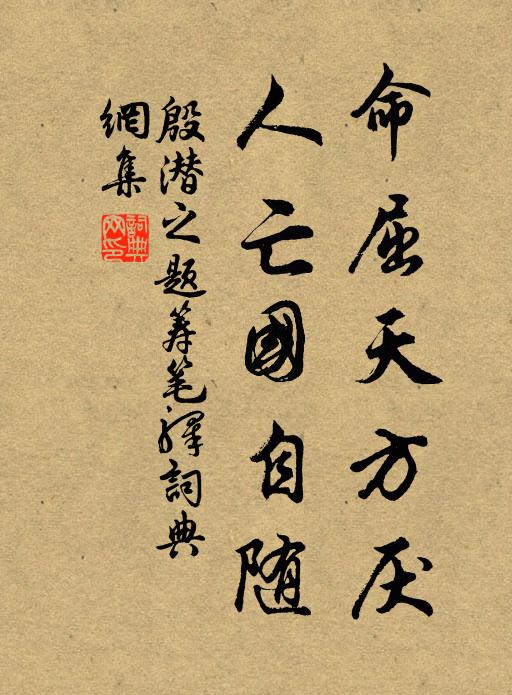 命屈天方厌
人亡國自随
殷潜之题筹笔驿詞典
網集
詞典网印